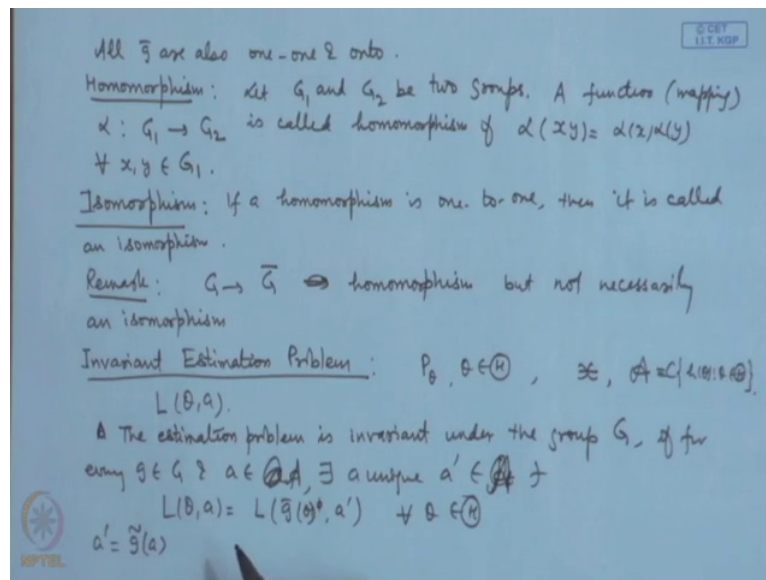 © CET
I.I.T. KGP
All g̅ are also one-one & onto.
Homomorphism: Let G₁ and G₂ be two groups. A function (mapping)
α : G₁ → G₂ is called homomorphism if α(xy) = α(x)α(y)
∀ x, y ∈ G₁.
Isomorphism: If a homomorphism is one-to-one, then it is called
an isomorphism.
Remark: G → G̅ homomorphism but not necessarily
an isomorphism
Invariant Estimation Problem: P_θ, θ ∈ Ⓗ, 𝒳, A = C{h(θ): θ ∈ Ⓗ}.
L(θ, a).
The estimation problem is invariant under the group G, if for
every g ∈ G & a ∈ A, ∃ a unique a' ∈ A ∋
L(θ, a) = L(g̅(θ), a') ∀ θ ∈ Ⓗ
a' = g̃(a)
NPTEL